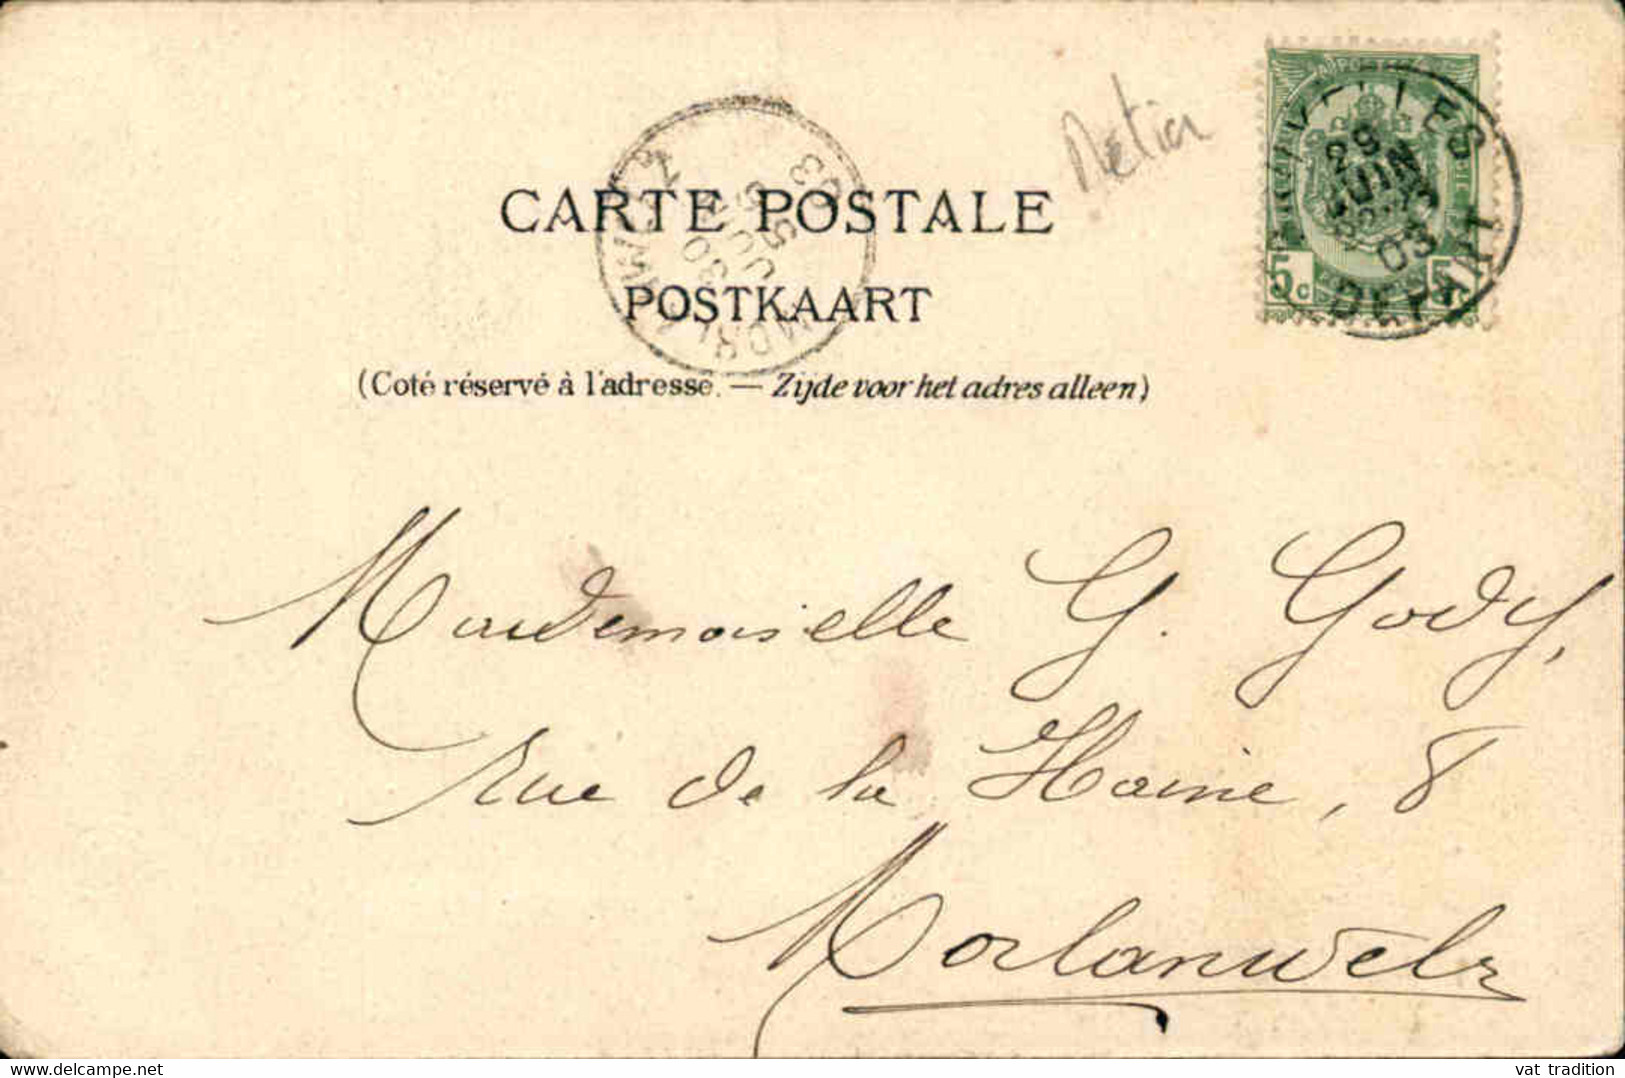 Metier
CARTE POSTALE
POSTKAART
(Coté réservé à l'adresse. — Zijde voor het adres alleen)
5c 5c
29
JUIN
03
Mademoiselle G. Gody,
Rue de la Haine, 8
Morlanwelz
vat tradition